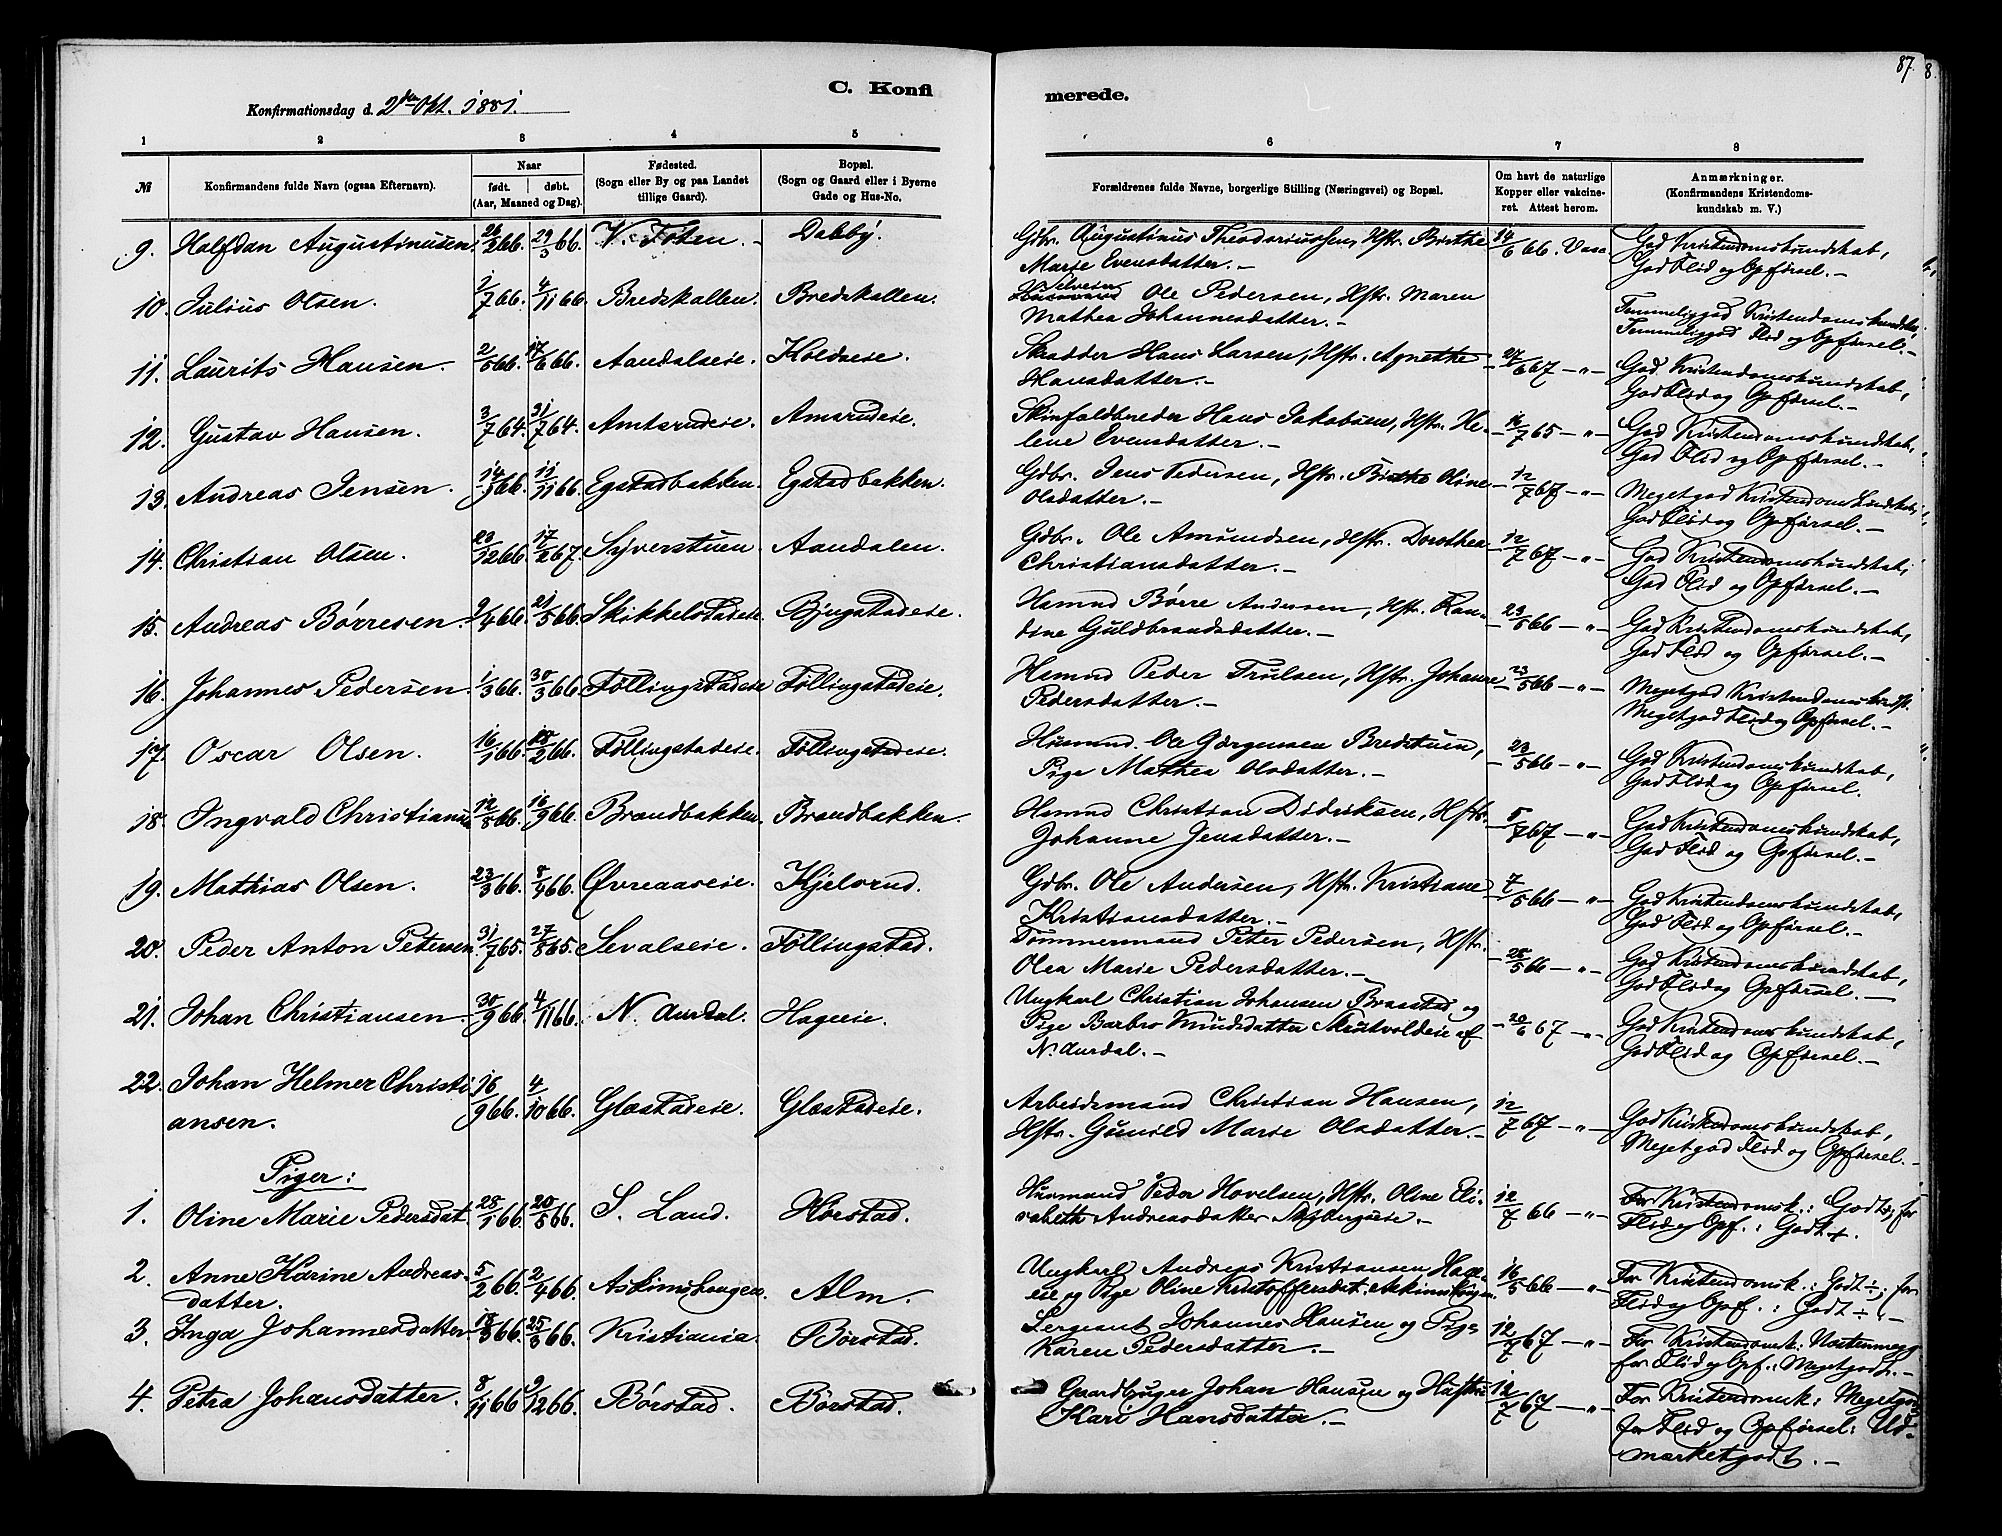 87.
8.
C. Konfi
merede.
Konfirmationsdag d. 2den Okt. 1881.
1 2 3 4 5
6 7 8
№
Konfirmandens fulde Navn (ogsaa Efternavn).
Naar
født. døbt.
(Aar, Maaned og Dag).
Fødested.
(Sogn eller By og paa Landet
tillige Gaard).
Bopæl.
(Sogn og Gaard eller i Byerne
Gade og Hus-No.
Forældrenes fulde Navne, borgerlige Stilling (Næringsvei) og Bopæl.
Om havt de naturlige
Kopper eller vakcine-
ret. Attest herom.
Anmærkninger.
(Konfirmandens Kristendoms-
kundskab m. V.)
9. Halfdan Augustinusen. 26/2 66. 29/3 66. V. Toten. Dahby.
Gdbr. Augustinus Theodoriussen, Hstr. Birthe 14/6 66. Vacc God Kristendomskundskab,
Marie Evensdatter. God Flid og Opførsel.
10. Julius Olsen. 1/7 66. 4/11 66. Bredskallen. Bredskallen.
Selveier
Ole Pedersen, Hstr. Maren Temmeliggod Kristendomskundskab,
Mathea Johannesdatter. Temmeliggod Flid og Opførsel.
11. Laurits Hansen. 2/5 66. 17/6 66. Aandalseie. Koldveie.
Skrædder Hans Larsen, Hstr. Agnethe 27/6 67 — " — God Kristendomskundskab,
Hansdatter. God Flid og Opførsel.
12. Gustav Hansen. 3/7 64. 31/7 64. Amtsrudeie. Amsrudeie.
Skinfeldbereder Hans Jakobsen, Hstr. He- 16/7 65 — " — God Kristendomskundskab,
lene Evensdatter. God Flid og Opførsel.
13. Andreas Jensen. 14/9 66. 11/11 66. Egstadbakken. Egstadbakken.
Gdbr. Jens Pedersen, Hstr. Birthe Oline 12/7 67 — " — Megetgod Kristendomskundskab,
Olsdatter. God Flid og Opførsel.
14. Christian Olsen. 23/12 66. 17/2 67. Syverstuen Aandalen.
Gdbr. Ole Amundsen, Hstr. Dorothea 12/7 67 — " — God Kristendomskundskab,
Christiansdatter. God Flid og Opførsel.
15. Andreas Børresen. 9/4 66. 21/5 66. Skikkelstadeie. Bjugstadeie.
Husmd Børre Andersen, Hstr. Ran- 23/5 66 — " — God Kristendomskundskab,
dine Guldbrandsdatter. God Flid og Opførsel.
16. Johannes Pedersen. 1/3 66. 30/3 66. Føllingstadeie Føllingstadeie.
Husmd Peder Trulsen, Hstr. Johanne 23/5 66 — " — Megetgod Kristendomskundsk.
Pedersdatter. Megetgod Flid og Opførsel.
17. Oscar Olsen. 16/1 66. 18/2 66. Føllingstadeie. Føllingstadeie.
Husmd. Ole Gørgensen Bredstuen, 23/5 66 — " — God Kristendomskundskab,
Pige Mathea Olsdatter. God Flid og Opførsel.
18. Ingvald Christiansen 12/8 66. 16/9 66. Brandbakken. Brandbakken.
Husmd Christian Didriksen, Hstr. 5/7 67 — " — God Kristendomskundskab,
Johanne Jensdatter. God Flid og Opførsel.
19. Mathias Olsen. 23/3 66. 8/4 66. Øvreaaseie. Kjelsrud.
Gdbr. Ole Andersen, Hstr. Kristiane 7/5 66 — " — God Kristendomskundskab,
Kristiansdatter. God Flid og Opførsel.
20. Peder Anton Petersen. 31/7 65. 27/8 65. Sevalseie. Føllingstad.
Tømmermand Peter Pedersen, Hstr. 28/5 66 — " — God Kristendomskundskab,
Olea Marie Pedersdatter. God Flid og Opførsel.
21. Johan Christiansen. 30/9 66. 4/11 66. N. Aurdal. Hageeie.
Ungkarl Christian Johansen Braastad og
Pige Barbro Knudsdatter Skutvoldeie af 20/6 67 — " — God Kristendomskundskab,
N. Aurdal. God Flid og Opførsel.
22. Johan Helmer Christi- 16/9 66. 4/10 66. Glæstadeie. Glæstadeie.
ansen.
Arbeidsmand Christian Hansen, 12/7 67 — " — God Kristendomskundskab,
Hstr. Gunild Marie Olsdatter. Megetgod Flid og Opførsel.
Piger:
1. Oline Marie Pedersdat. 28/1 66. 20/5 66. S. Land. Hørstad.
Husmand Peder Hovelsen, Hstr. Oline Eli- 12/7 66 — " — For Kristendomsk.: Godt; for
sabeth Andreasdatter. Flid og Opf.: Godt.
2. Anne Karine Andreas- 5/2 66. 2/4 66. Askimshaugen. Alm.
datter.
Ungkarl Andreas Kristiansen Hage- 16/5 66 — " — For Kristendomsk.: Godt ÷; for
eie og Pige Oline Kristoffersdat. Flid og Opf.: Godt ÷.
3. Inga Johannesdatter 18/3 66. 25/3 66. Kristiania. Børstad.
Sergeant Johannes Hansen og Pige 12/7 67 — " — For Kristendomsk: Næstenmeg.
Karen Pedersdatter. for Flid og Opf.: Megetgodt.
4. Petra Johansdatter. 8/11 66 9/12 66. Børstad. Børstad.
Gaardbruger Johan Hansen og Hustru 12/7 67 — " — For Kristendomsk: Megetgodt
Kari Hansdatter. for Flid og Opførsel: Ud-
mærketgodt.